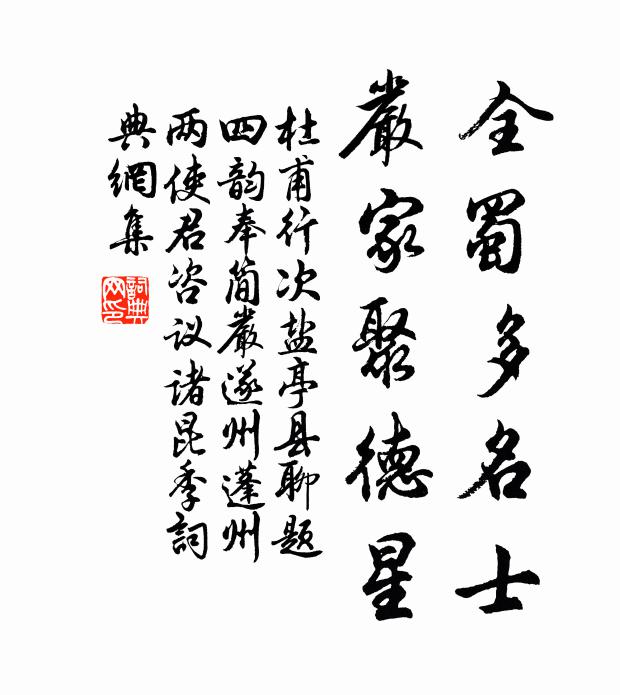 全蜀多名士
嚴家聚德星
杜甫行次盐亭县聊题
四韵奉简嚴遂州蓬州
两使君咨议诸昆季詞
典網集
詞典
网印